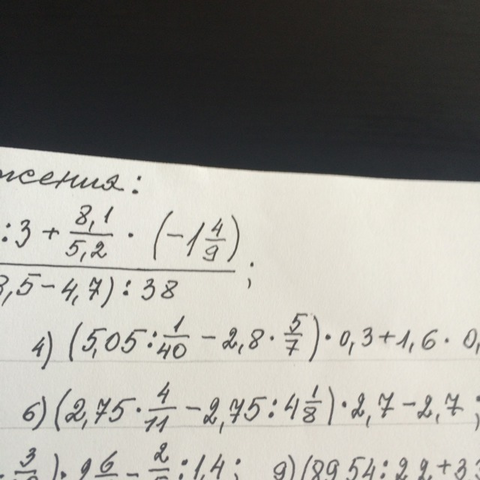 жения:
:3 + 8,1/5,2 · (-1 4/9)
3,5 - 4,7) : 38 ;
4) (5,05 : 1/40 - 2,8 · 5/7) · 0,3 + 1,6 · 0,
6) (2,75 · 4/11 - 2,75 : 4 1/8) · 2,7 - 2,7 ;
: 1,4 ; 9) (89,54 : 2,2 + 33